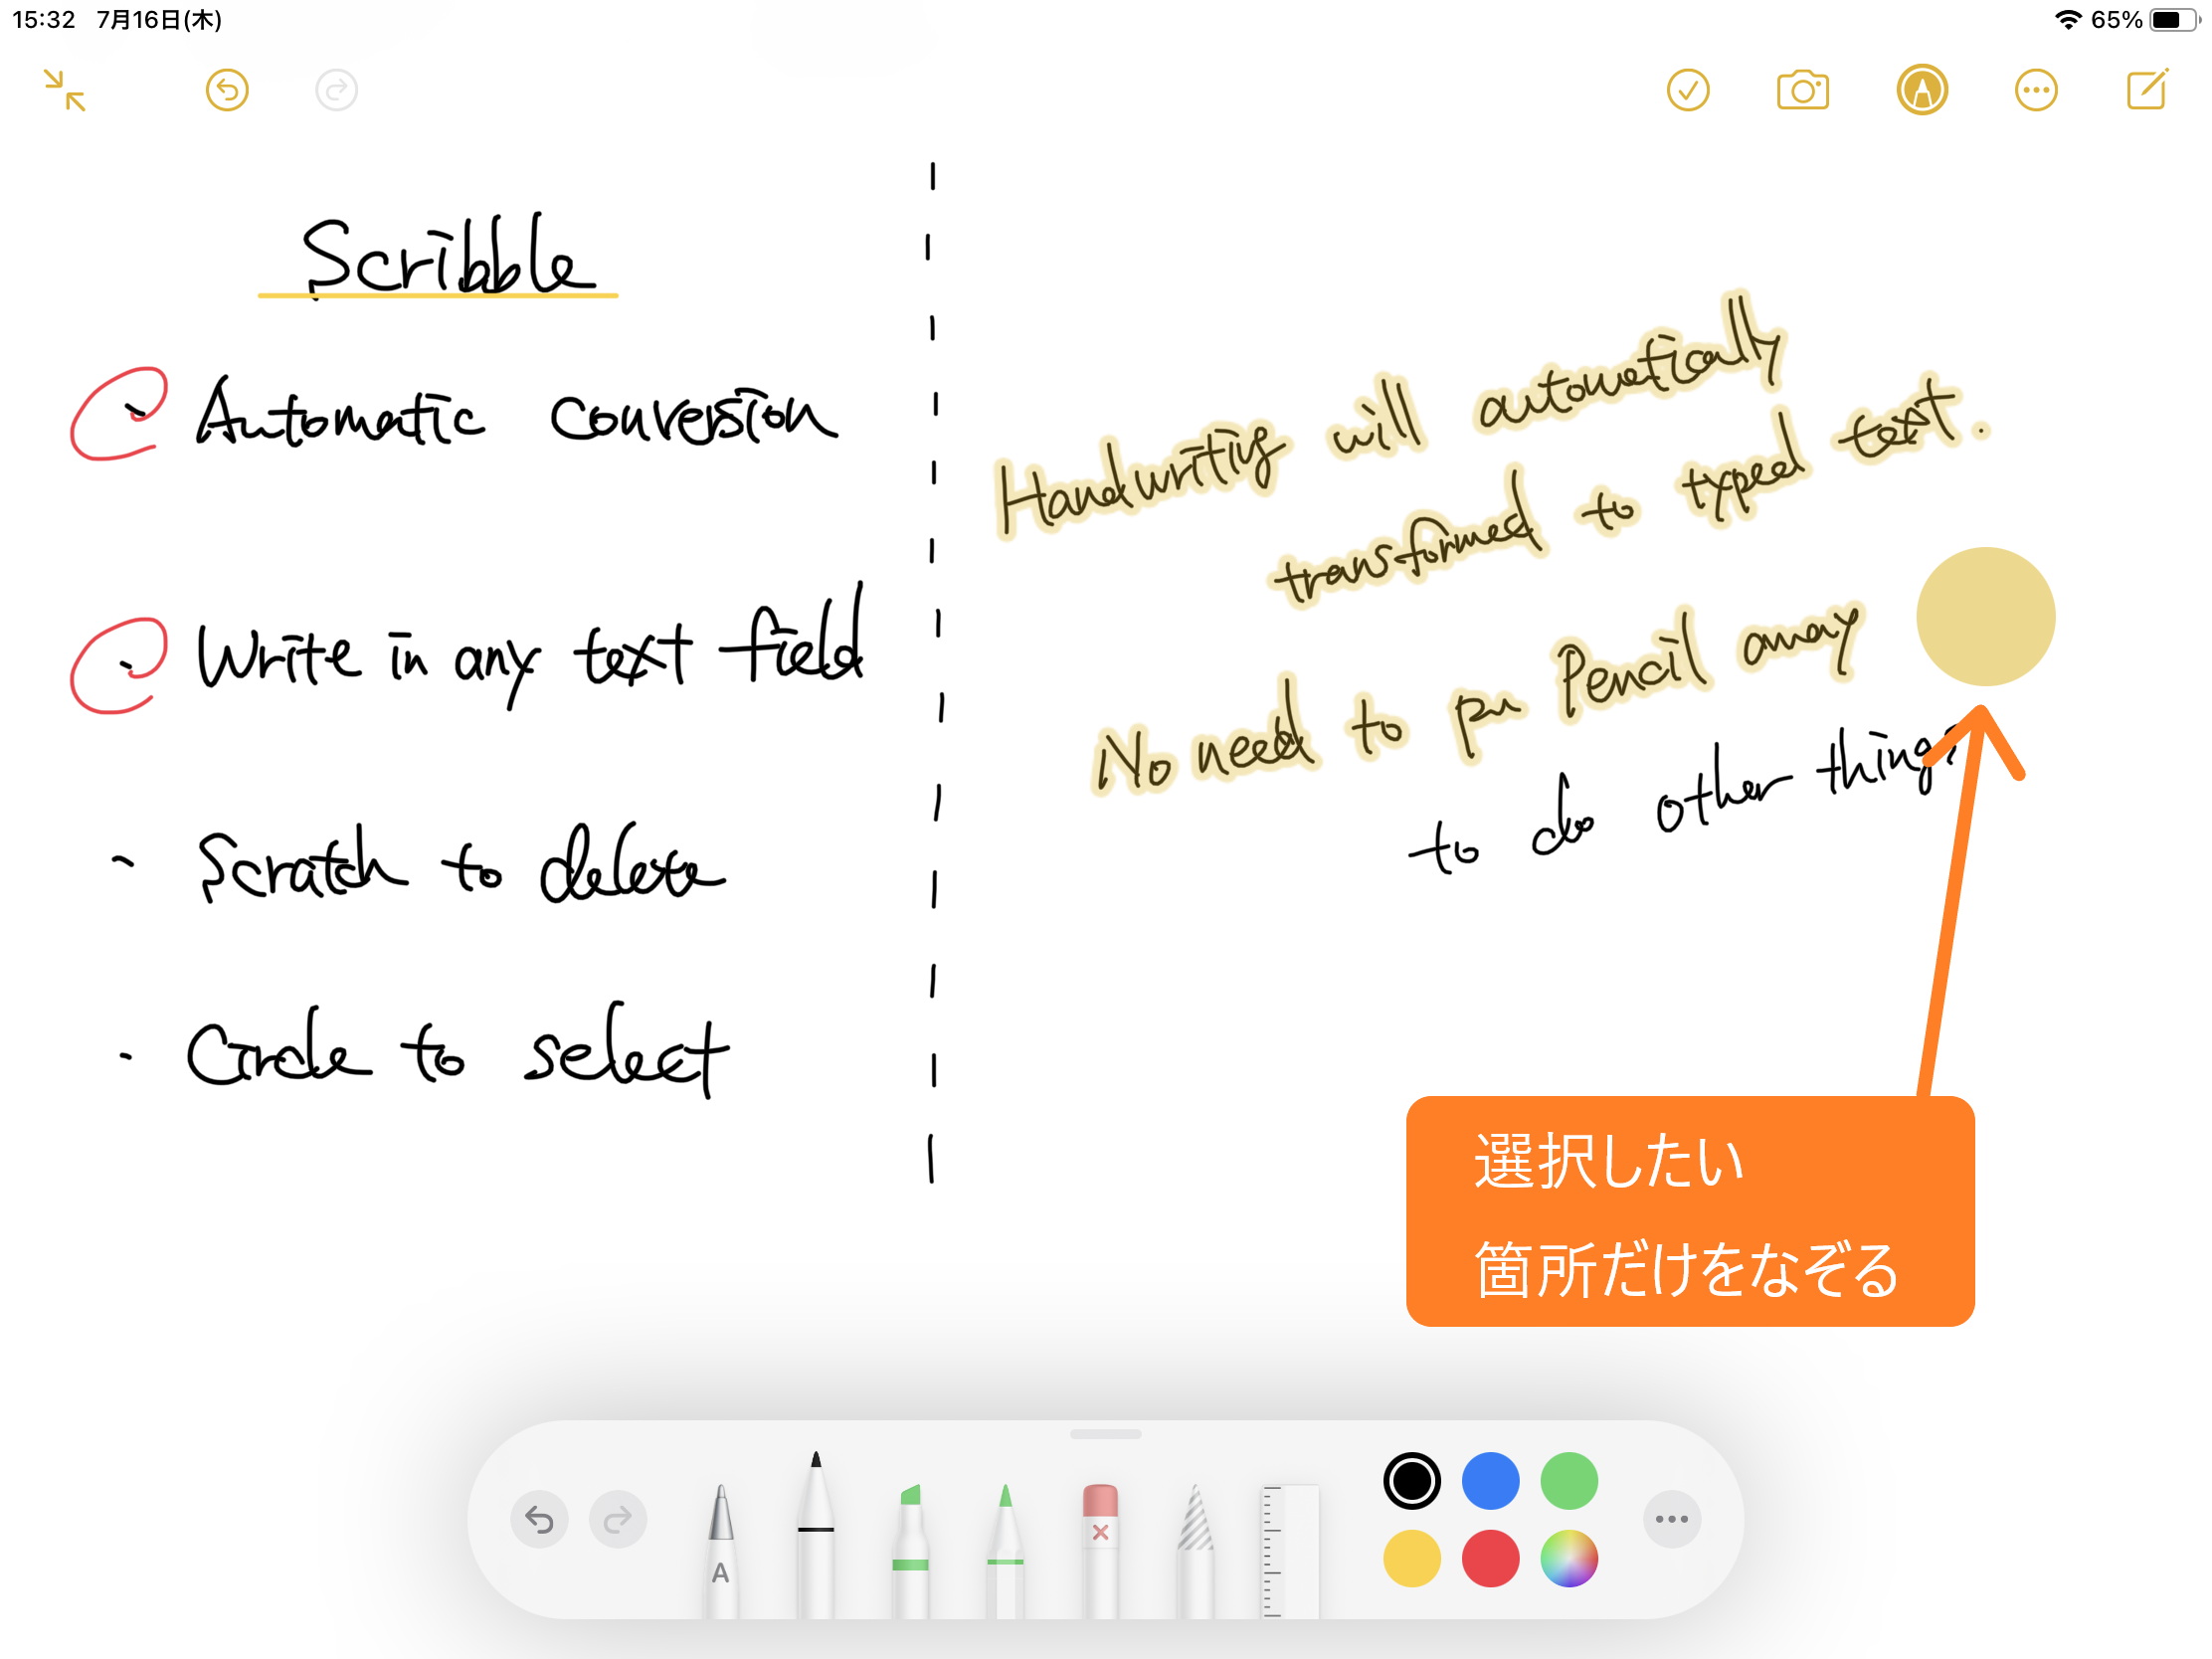 15:32 7月16日(木)
65%
Scribble
- Automatic conversion
- Write in any text field
- Scratch to delete
- Circle to select
Handwritig will automatically
transformed to typed text.
No need to pu Pencil away
to do other things
選択したい
箇所だけをなぞる
A